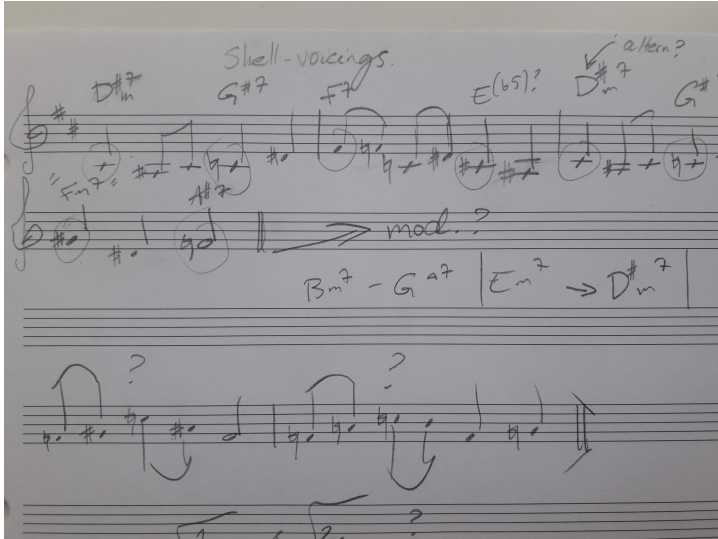 Shell-voicings.
altern?
D#m7 G#7 F7 E(b5)? D#m7 G#
"Fm7" A#7
mod.?
Bm7 - G△7 | Em7 → D#m7 |
? ?
1. 2. ?